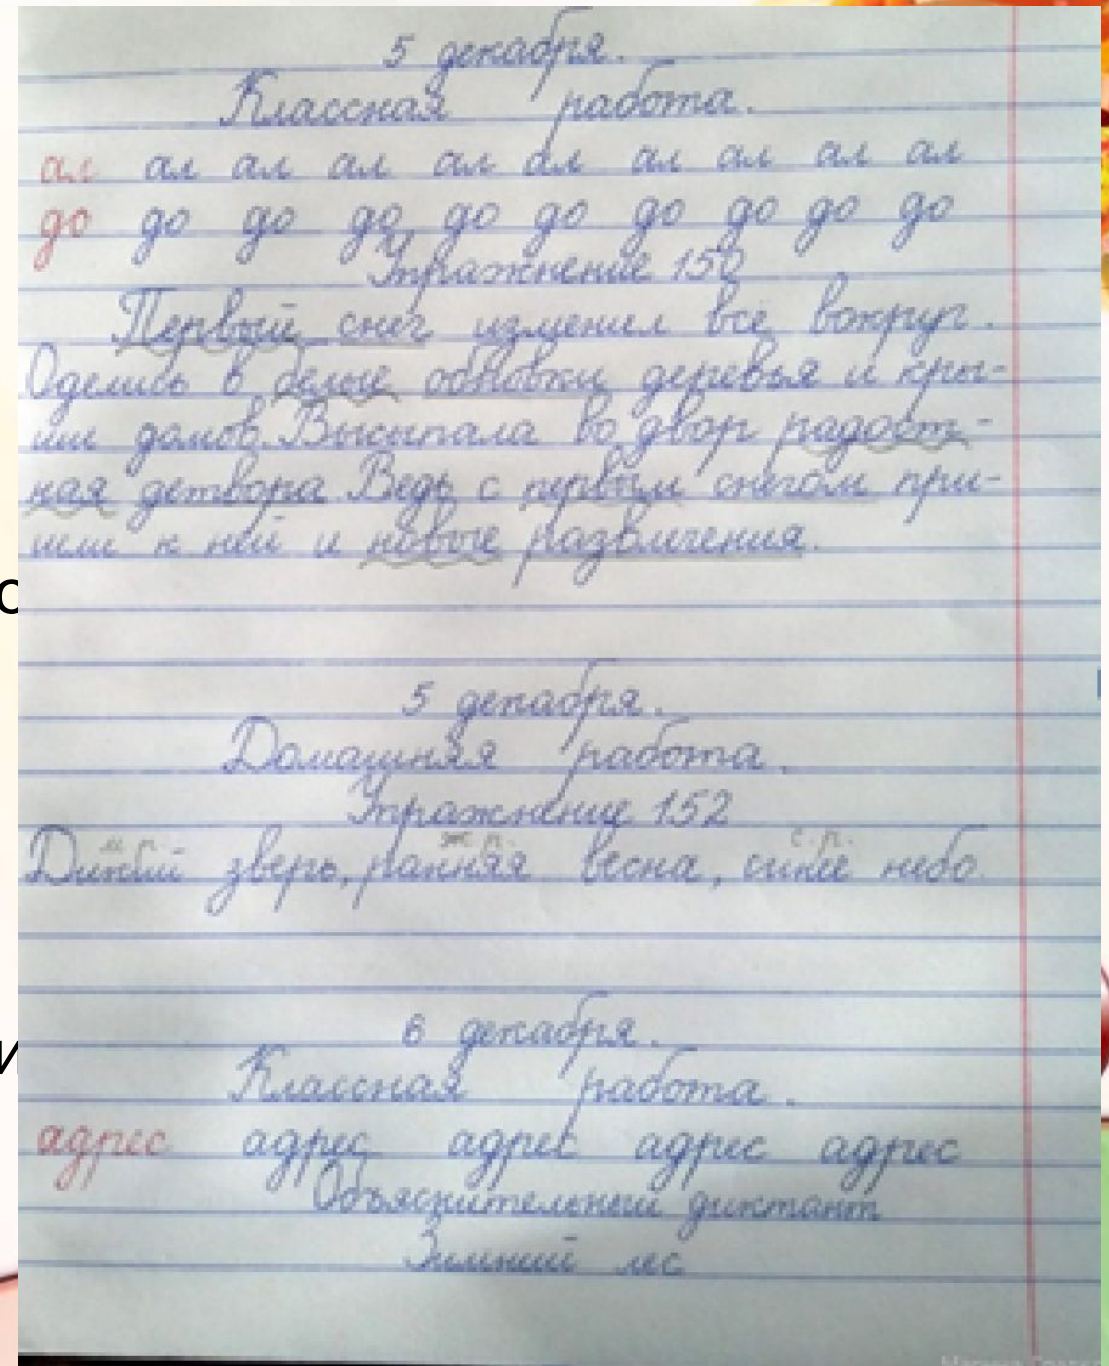 5 декабря.
Классная работа.
ал ал ал ал ал ал ал ал ал ал
до до до до до до до до до до
Упражнение 150
Первый снег изменил всё вокруг.
Оделись в белые обновки деревья и кры-
ши домов. Высыпала во двор радост-
ная детвора Ведь с первым снегом при-
шли к ней и новые развлечения.
5 декабря.
Домашняя работа.
Упражнение 152
м р. ж р. с.р.
Дикий зверь, ранняя весна, синее небо.
6 декабря.
Классная работа.
адрес адрес адрес адрес адрес
Объяснительный диктант
Зимний лес
о
и